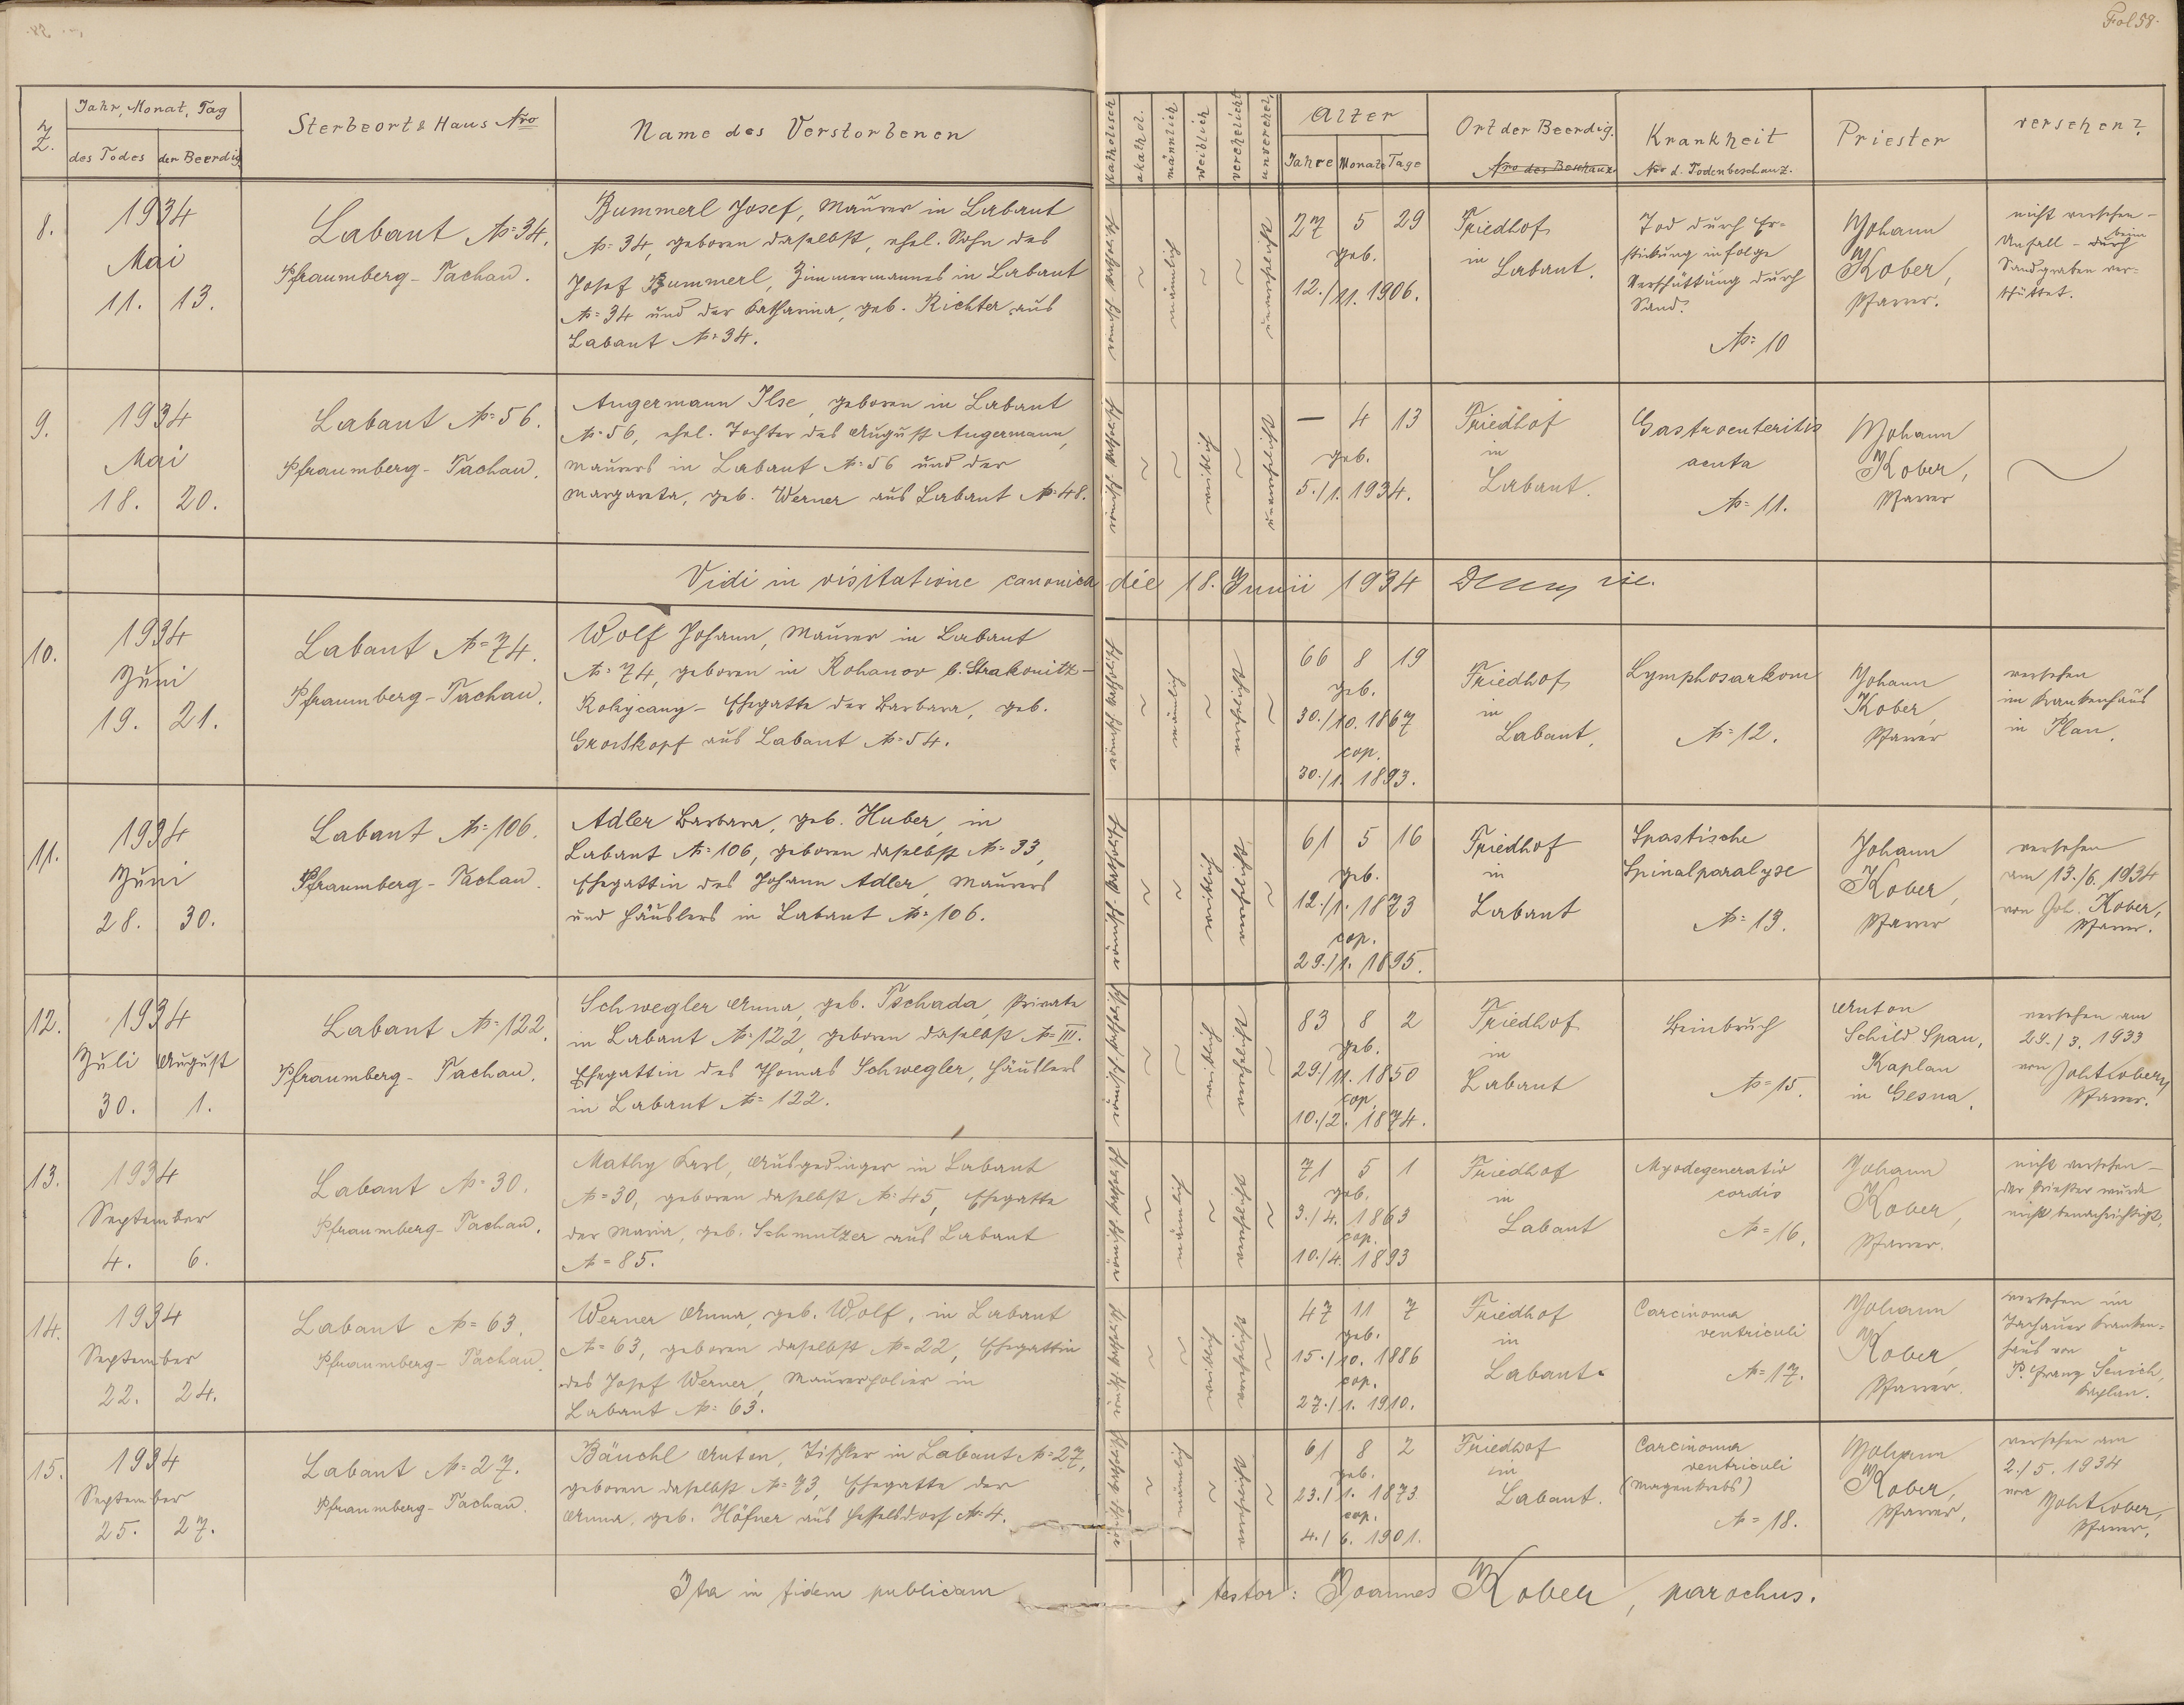 Fol 58.
Z.
Jahr, Monat, Tag
des Todes der Beerdig.
Sterbeort & Haus Nro
Name des Verstorbenen
katholisch
akathol.
männlich
weiblich
verehelicht
unverehel.
Alter
Jahre Monate Tage
Ort der Beerdig.
Nro des Beschauz.
Krankheit
Nro d. Todenbeschauz.
Priester
versehen?
8.
1934
Mai
11. 13.
Labant № 34.
Pfraumberg - Tachau.
Bummerl Josef, Maurer in Labant
№ 34, geboren daselbst, ehel. Sohn des
Josef Bummerl, Zimmermannes in Labant
№ 34 und der Katharina, geb. Richter aus
Labant № 34.
römisch katholisch
~
männlich
~
~
unverehelicht
27 5 29
geb.
12./11. 1906.
Friedhof
in
Labant.
Tod durch Er-
stickung infolge
Verschüttung durch
Sand.
№ 10
Johann
Kober,
Pfarrer.
nicht versehen -
beim
Unfall - durch
Sandgraben ver-
schüttet.
9.
1934
Mai
18. 20.
Labant № 56.
Pfraumberg - Tachau.
Angermann Ilse, geboren in Labant
№ 56, ehel. Tochter des August Angermann,
Maurers in Labant № 56 und der
Margareta, geb. Werner aus Labant № 48.
römisch katholisch
~
~
weiblich
~
unverehelicht
— 4 13
geb.
5./1. 1934.
Friedhof
in
Labant.
Gastroenteritis
acuta
№ 11.
Johann
Kober,
Pfarrer
~
Vidi in visitatione canonica die 18. Junii 1934
10.
1934
Juni
19. 21.
Labant № 74.
Pfraumberg - Tachau.
Wolf Johann, Maurer in Labant
№ 74, geboren in Rohanov b. Strakonitz -
Rokycany - Ehegatte der Barbara, geb.
Grosskopf aus Labant № 54.
römisch katholisch
~
männlich
~
verehelicht
~
66 8 19
geb.
30./10. 1867
cop.
30./1. 1893.
Friedhof
in
Labant.
Lymphosarkom
№ 12.
Johann
Kober,
Pfarrer
versehen
im Krankenhaus
in Plan.
11.
1934
Juni
28. 30.
Labant № 106.
Pfraumberg - Tachau.
Adler Barbara, geb. Huber, in
Labant № 106, geboren daselbst № 33,
Ehegattin des Johann Adler, Maurers
und Häuslers in Labant № 106.
römisch katholisch
~
~
weiblich
verehelicht
~
61 5 16
geb.
12./1. 1873
cop.
29./1. 1895.
Friedhof
in
Labant
Spastische
Spinalparalyse
№ 13.
Johann
Kober,
Pfarrer
versehen
am 13./6. 1934
von Joh. Kober,
Pfarrer.
12.
1934
Juli August
30. 1.
Labant № 122.
Pfraumberg - Tachau.
Schwegler Anna, geb. Tschada, Private
in Labant № 122, geboren daselbst № III.
Ehegattin des Thomas Schwegler, Häuslers
in Labant № 122.
römisch katholisch
~
~
weiblich
verehelicht
~
83 8 2
geb.
29./11. 1850
cop.
10./2. 1874.
Friedhof
in
Labant
Beinbruch
№ 15.
Anton
Schild Span,
Kaplan
in Gesna.
versehen am
29./3. 1933
von Joh Kober,
Pfarrer.
13.
1934
September
4. 6.
Labant № 30.
Pfraumberg - Tachau.
Mathy Karl, Ausgedinger in Labant
№ 30, geboren daselbst № 45, Ehegatte
der Maria, geb. Schmutzer aus Labant
№ 85.
römisch katholisch
~
männlich
~
verehelicht
~
71 5 1
geb.
3./4. 1863
cop.
10./4. 1893
Friedhof
in
Labant
Myodegeneratio
cordis
№ 16.
Johann
Kober,
Pfarrer.
nicht versehen -
der Priester wurde
nicht benachrichtigt.
14.
1934
September
22. 24.
Labant № 63.
Pfraumberg - Tachau.
Werner Anna, geb. Wolf, in Labant
№ 63, geboren daselbst № 22, Ehegattin
des Josef Werner, Maurerpolier in
Labant № 63.
römisch katholisch
~
~
weiblich
verehelicht
~
47 11 7
geb.
15./10. 1886
cop.
27./1. 1910.
Friedhof
in
Labant.
Carcinoma
ventriculi
№ 17.
Johann
Kober,
Pfarrer.
versehen im
Tachauer Kranken-
haus von
P. Franz Senich,
Kaplan.
15.
1934
September
25. 27.
Labant № 27.
Pfraumberg - Tachau.
Bäuchl Anton, Tischler in Labant № 27,
geboren daselbst № 73, Ehegatte der
Anna, geb. Höfner aus Hesselsdorf № 4.
römisch katholisch
~
männlich
~
verehelicht
~
61 8 2
geb.
23./1. 1873
cop.
4./6. 1901.
Friedhof
in
Labant.
Carcinoma
ventriculi
(Magenkrebs)
№ 18.
Johann
Kober,
Pfarrer.
versehen am
2./5. 1934
von
Joh Kober,
Pfarrer.
Ita in fidem publicam testor: Joannes Kober, parochus.